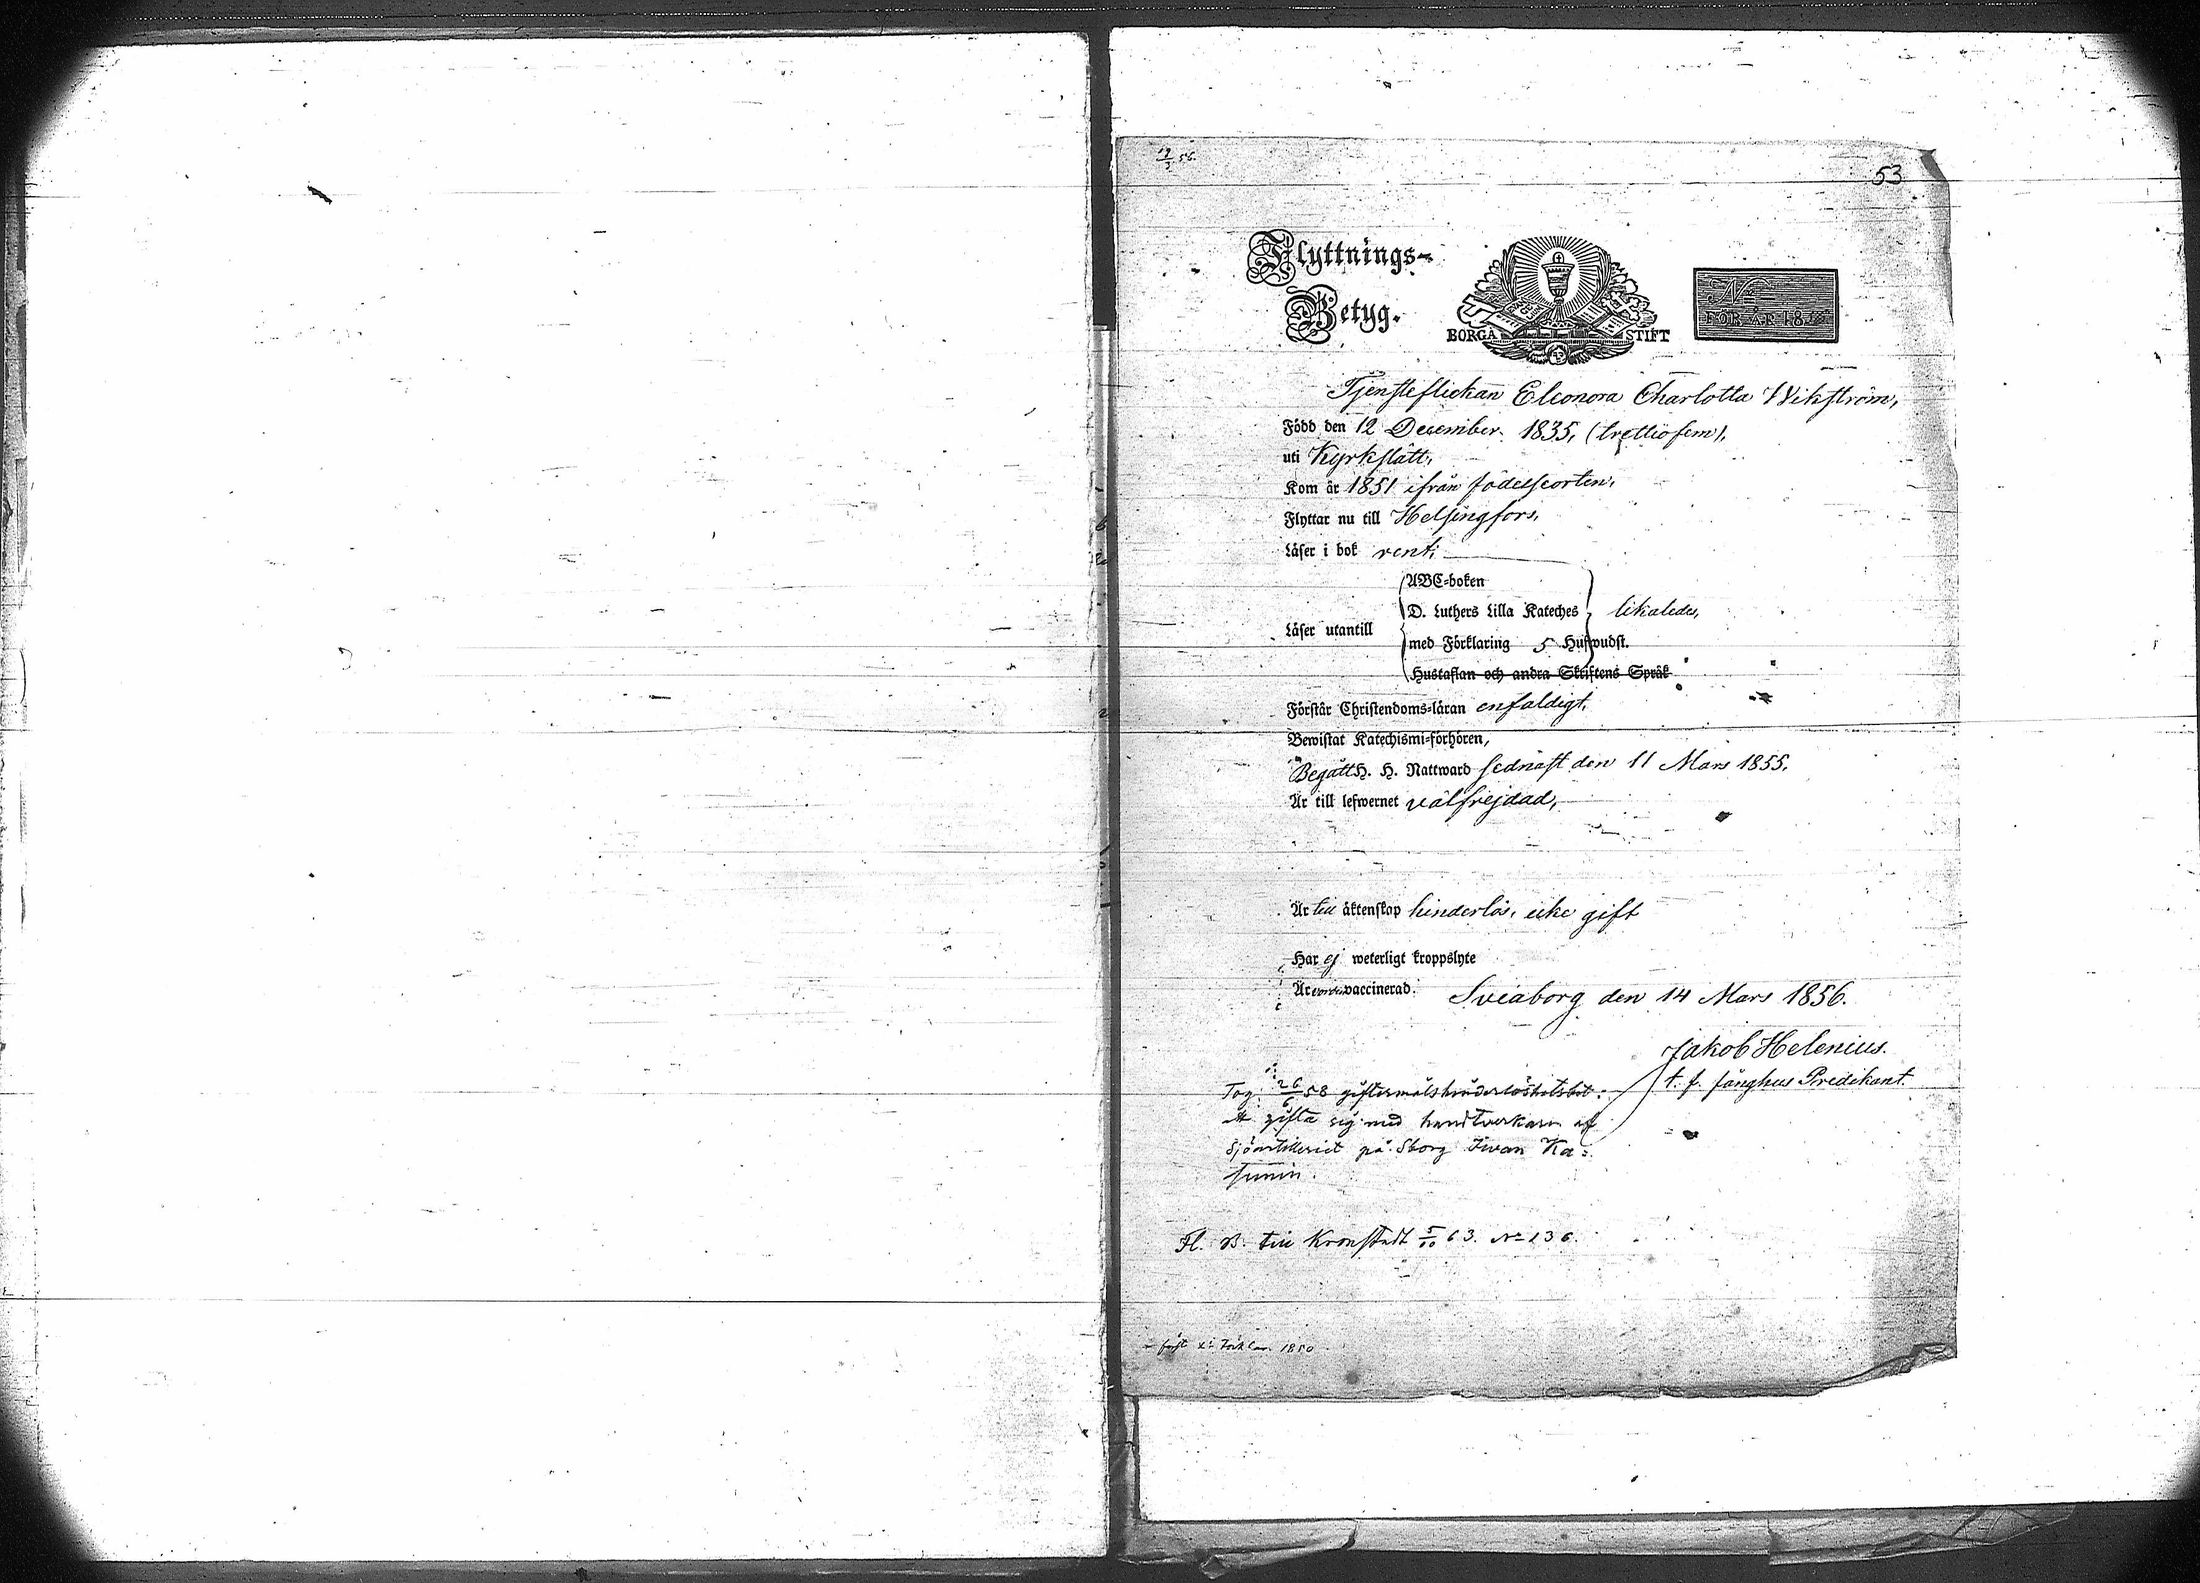 19/3 56.
53
Flyttnings-
Betyg.
BORGÅ STIFT
No
FÖR ÅR 185
Tjensteflickan Eleonora Charlotta Wikström,
Född den 12 December 1835, (trettiofem),
uti Kyrkslätt,
Kom år 1851 ifrån födelseorten,
Flyttar nu till Helsingfors,
Läser i bok rent;
ABC-boken
D. Luthers Lilla Kateches likaledes,
Läser utantill
med Förklaring 5 Hufwudst.
Hustaflan och andra Skriftens Språk
Förstår Christendoms-läran enfaldigt,
Bewistat Katechismi-förhören,
Begått H. H. Nattward sednast den 11 Mars 1855,
Är till lefwernet välfrejdad,
Är till äktenskap hinderlös, icke gift
Har ej weterligt kroppslyte
Är vorden vaccinerad.
Sveaborg den 14 Mars 1856.
Jakob Helenius.
t. f. fånghus Predikant.
Tog 26/6 58 giftermålshinderlöshetsbet:
att gifta sig med handtverkaren af
Sjöartilleriet på Sborg Iwan Ka-
Fl. B. till Kronstadt 5/10 63. No 136.
1850